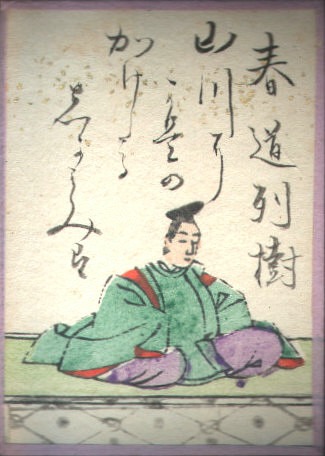 春道列樹
山川に
かせの
かけたる
しからみは